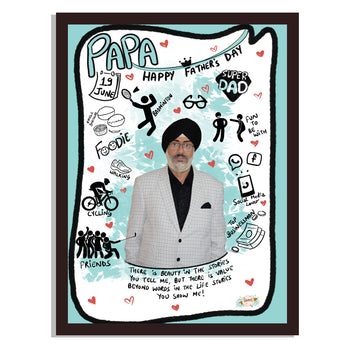 PAPA
HAPPY FATHER'S DAY
19
JUNE
BADMINTON
SUPER
DAD
FOODIE
FUN
TO BE
WITH
WALKING
CYCLING
SOCIAL MEDIA
LOVER
TOP
BUSINESSMAN
FRIENDS
THERE IS BEAUTY IN THE STORIES
YOU TELL ME, BUT THERE IS VALUE
BEYOND WORDS IN THE LIFE STORIES
YOU SHOW ME!